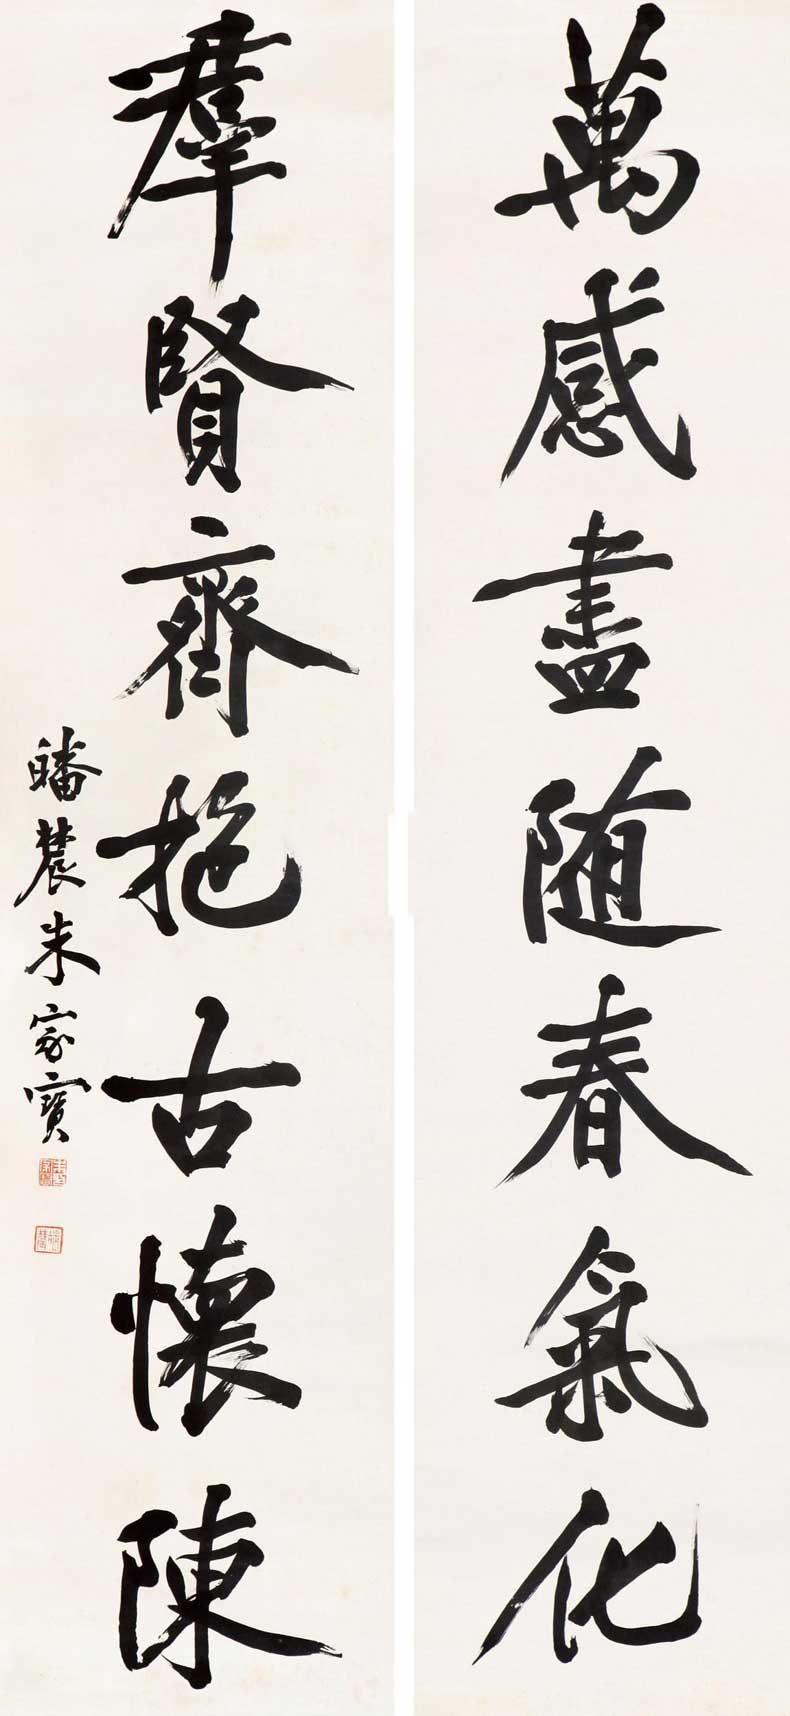 萬感盡随春氣化
羣賢齊抱古懷陳
皤農朱家寶